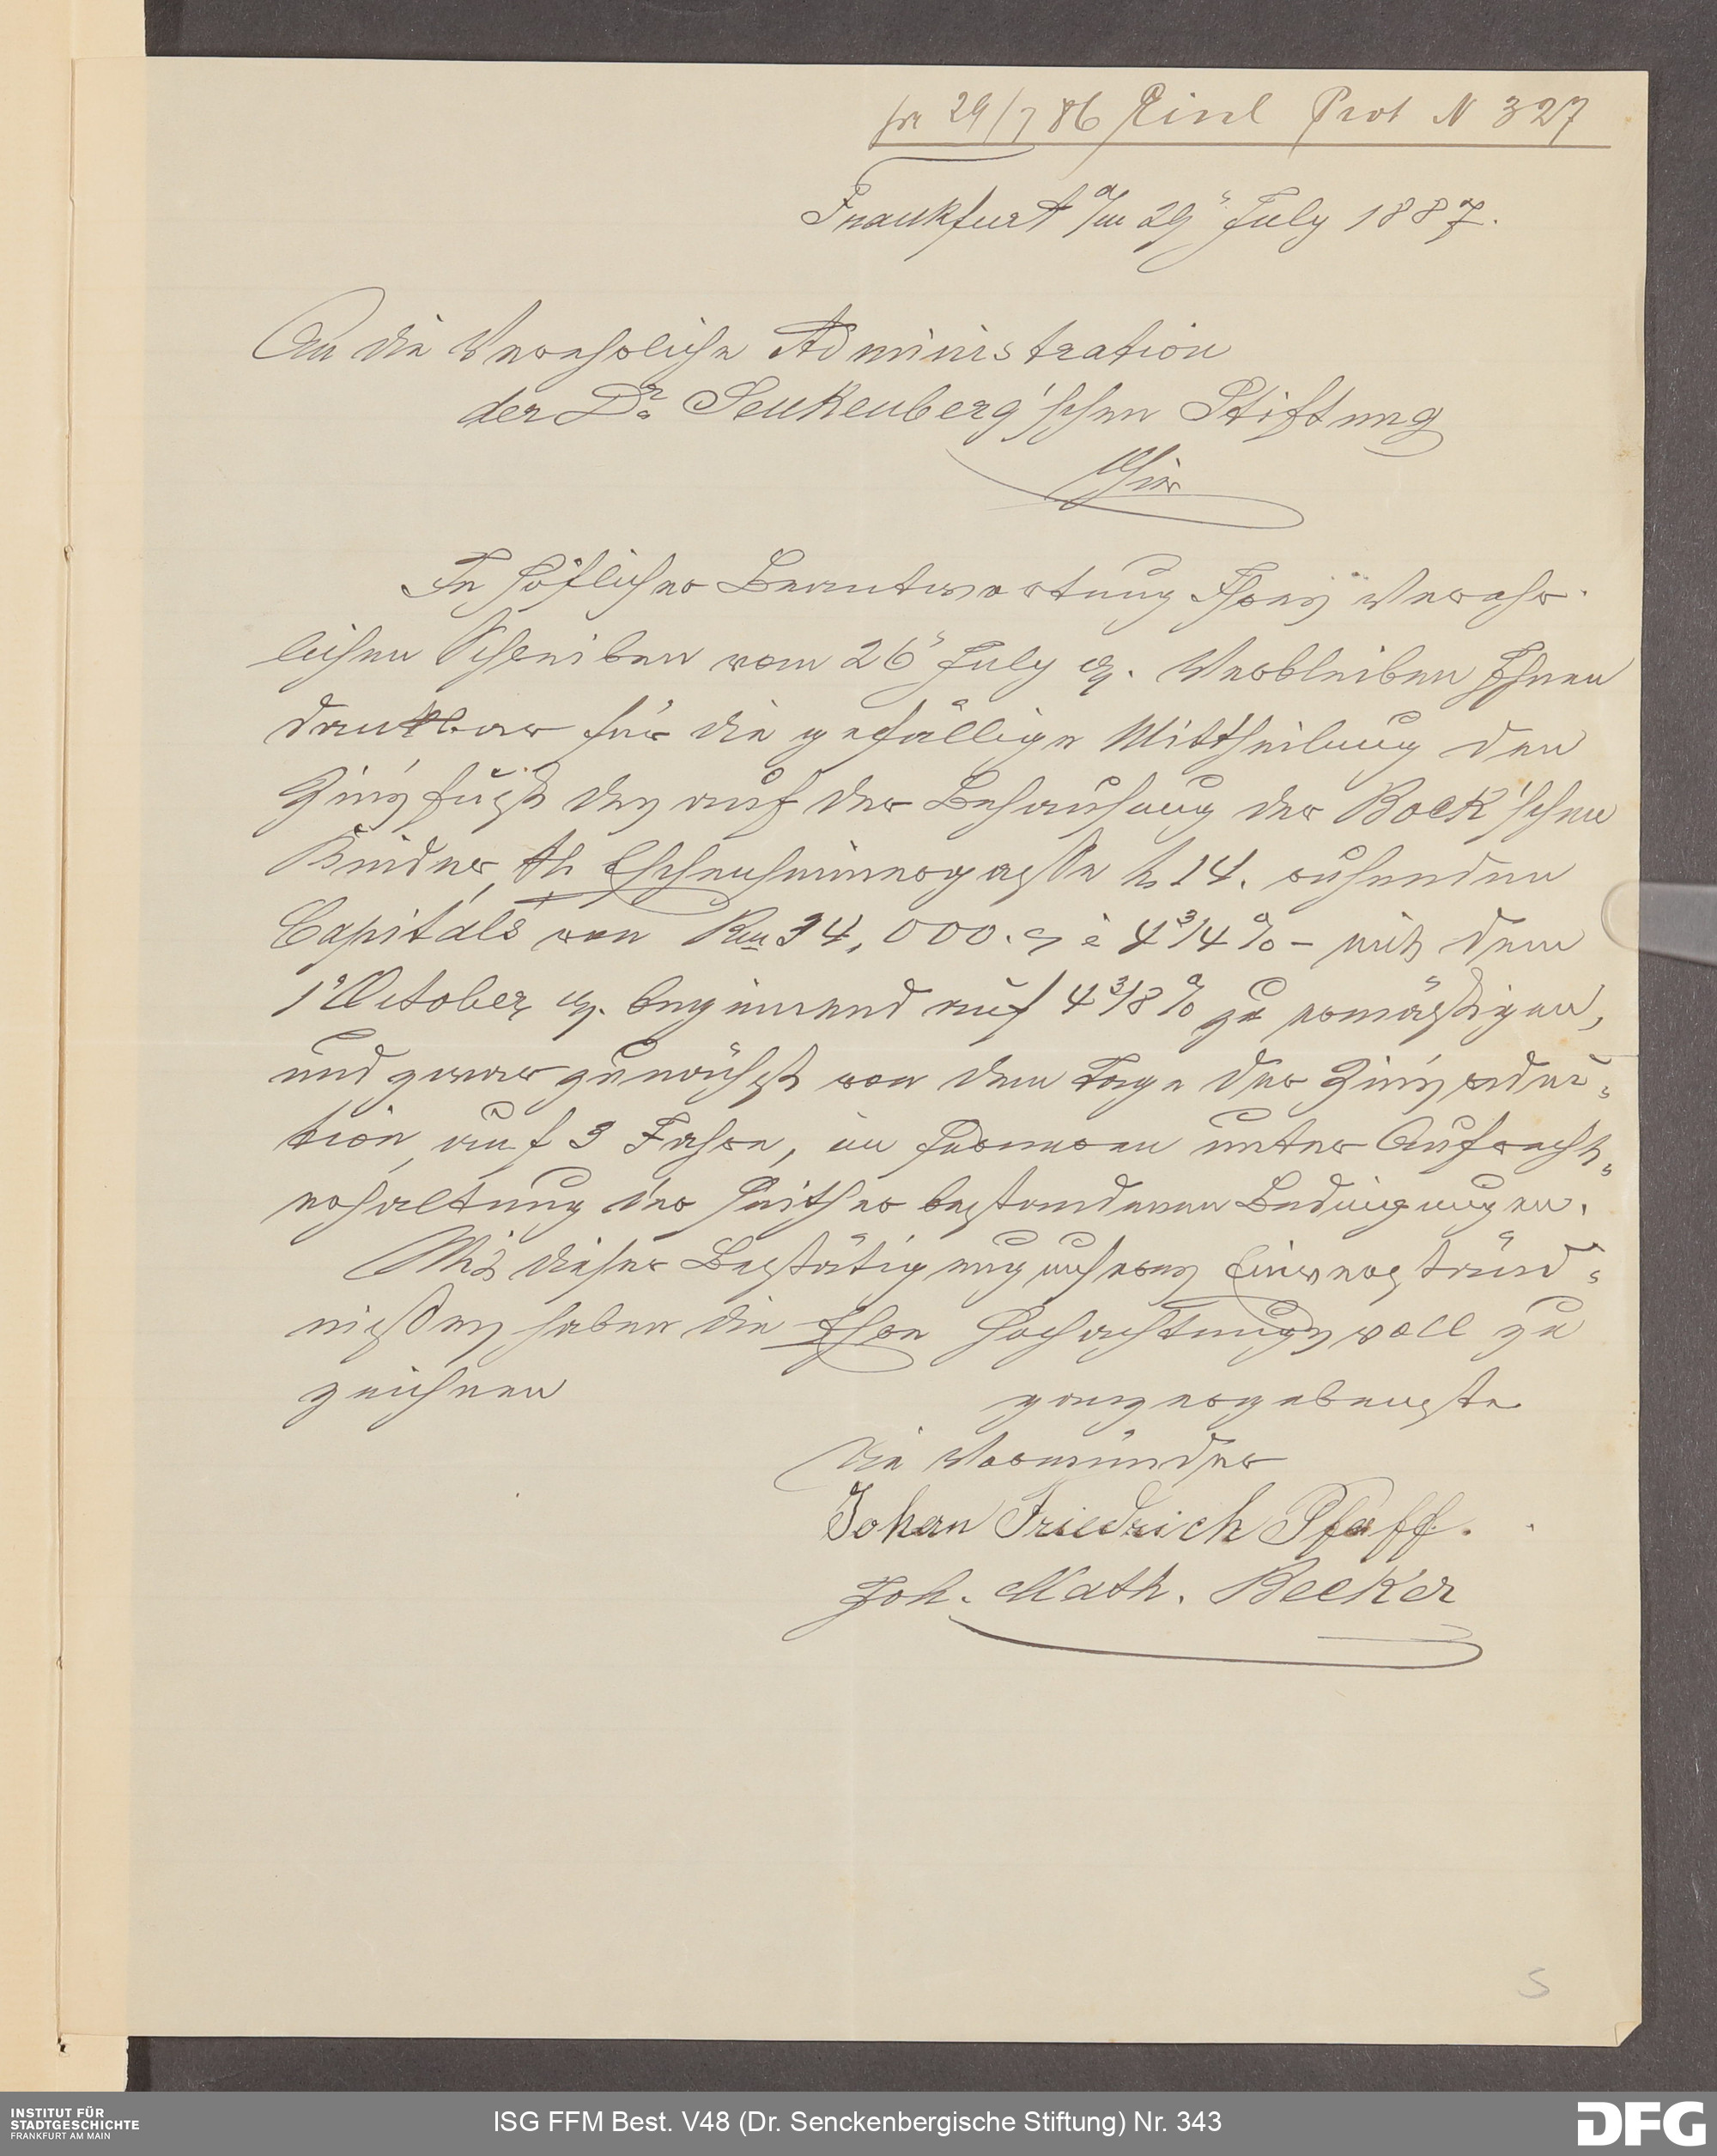 pr 29/7 86 Einl Prot N 327
Frankfurt a/m 29 July 1887.
An die Verehrliche Administration
der Dr. Senkenberg'schen Stiftung
Hier
In höflicher Beantwortung Ihres Verehr-
lichen Schreiben vom 26 July cr. verbleiben Ihnen
dankbar für die gefällige Mittheilung den
Zinsfuss des auf der Behausung der Bock'schen
Kinder, Eschenheimergasse No 14. ruhenden
Capitals von Rm 34,000. à 4 3/4 % – mit dem
1 October cr. beginnend auf 4 3/8 % zu ermässigen,
und zwar zunächst von dem Tage der Zinsreduc-
tion, auf 3 Jahre, im Ferneren unter Aufrecht-
erhaltung der seither bestandenen Bedingungen.
Mit dieser Bestätigung unseres Einverständ-
nisses haben die Ehre Hochachtungsvoll zu
zeichnen
ganz ergebenste
Die Vormünder
Johan Friedrich Pfaff.
Joh. Math. Becker
5
INSTITUT FÜR
STADTGESCHICHTE
FRANKFURT AM MAIN
ISG FFM Best. V48 (Dr. Senckenbergische Stiftung) Nr. 343
DFG